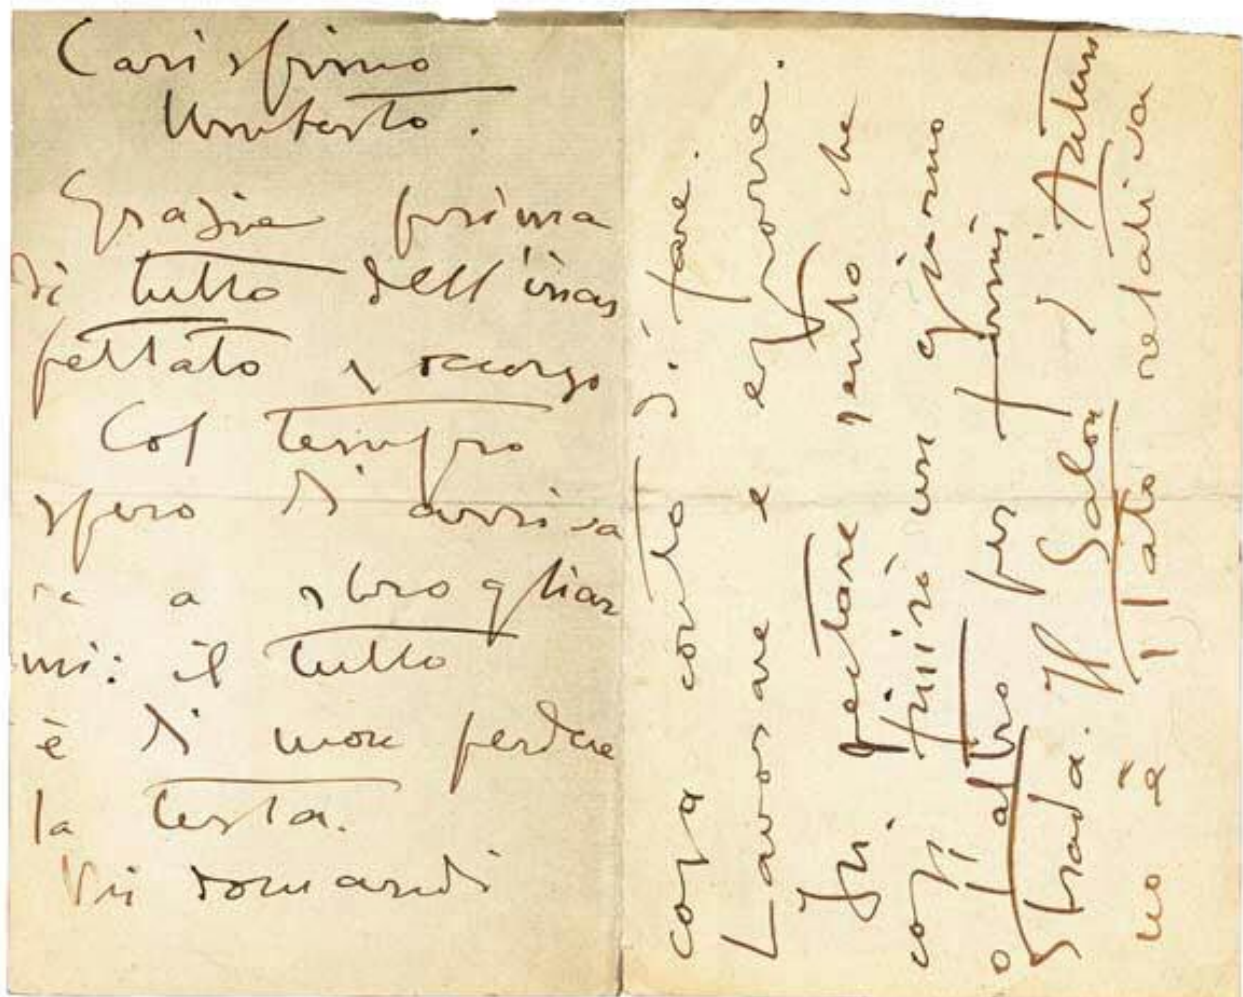 Carissimo
Umberto.
Grazie prima
di tutto dell'inas
pettato soccorso
Col tempo
spero di arriva
re a sbrogliar
mi: il tutto
è di non perdere
la testa.
Mi domandi
cosa conto di fare.
Lavorare e esporre.
Mi pento che
così finirò un giorno
o l'altro per farmi
strada. Il Salon
no è stato relativa